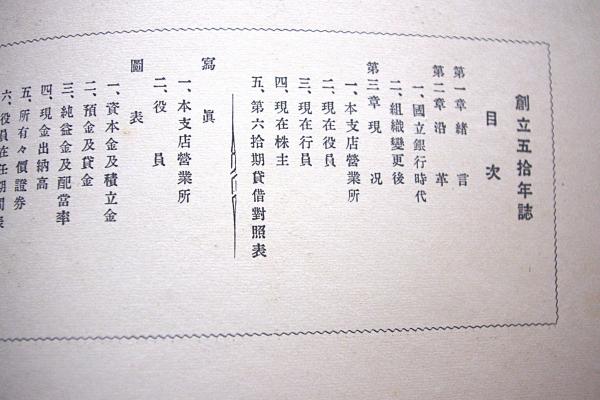 創立五拾年誌
目次
第一章緒言
第二章沿革
一、國立銀行時代
二、組織變更後
第三章現况
一、本支店營業所
二、現在役員
三、現在行員
四、現在株主
五、第六拾期貸借對照表
寫眞
一、本支店營業所
二、役員
圖表
一、資本金及積立金
二、預金及貸金
三、純益金及配當率
四、現金出納高
五、所有々價證券
六、役員在任期間表